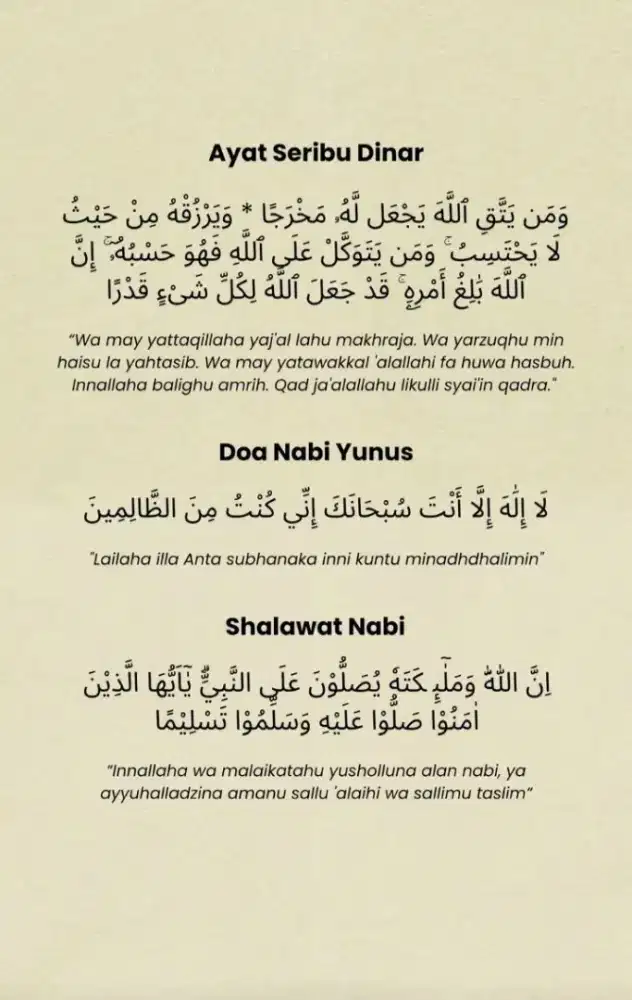 Ayat Seribu Dinar
وَمَن يَتَّقِ ٱللَّهَ يَجْعَل لَّهُۥ مَخْرَجًا * وَيَرْزُقْهُ مِنْ حَيْثُ
لَا يَحْتَسِبُ ۚ وَمَن يَتَوَكَّلْ عَلَى ٱللَّهِ فَهُوَ حَسْبُهُۥٓ ۚ إِنَّ
ٱللَّهَ بَٰلِغُ أَمْرِهِۦ ۚ قَدْ جَعَلَ ٱللَّهُ لِكُلِّ شَىْءٍ قَدْرًا
“Wa may yattaqillaha yaj'al lahu makhraja. Wa yarzuqhu min
haisu la yahtasib. Wa may yatawakkal 'alallahi fa huwa hasbuh.
Innallaha balighu amrih. Qad ja'alallahu likulli syai'in qadra."
Doa Nabi Yunus
لَا إِلَٰهَ إِلَّا أَنْتَ سُبْحَانَكَ إِنِّي كُنْتُ مِنَ الظَّالِمِينَ
"Lailaha illa Anta subhanaka inni kuntu minadhdhalimin"
Shalawat Nabi
اِنَّ اللّٰهَ وَمَلٰۤىِٕكَتَهٗ يُصَلُّوْنَ عَلَى النَّبِيِّۗ يٰٓاَيُّهَا الَّذِيْنَ
اٰمَنُوْا صَلُّوْا عَلَيْهِ وَسَلِّمُوْا تَسْلِيْمًا
“Innallaha wa malaikatahu yusholluna alan nabi, ya
ayyuhalladzina amanu sallu 'alaihi wa sallimu taslim”